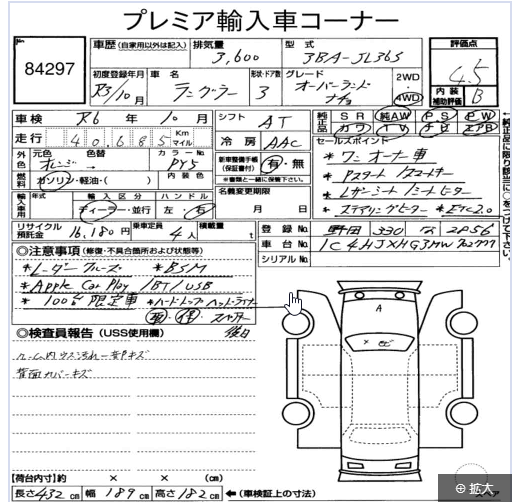 プレミア輸入車コーナー
84297
車歴 (自家用以外は記入) 排気量 3,600 型式 3BA-JL36S
評価点 4.5
内装補助評価 B
初度登録年月 R3/10月 車名 ラングラー 形状・ドア数 3 グレード オーバーランド 2WD 4WD
車検 R6年10月 シフト AT
純正品 SR 純AW PS PW
カワ TV ナビ エアB
走行 40,685 Km マイル 冷房 AAC
セールスポイント
外色 元色 オレンジ 色替 カラーNo. PY5
新車整備手帳(保証書付) 有・無
※書類と一緒に保管下さい。
* ワンオーナー車
燃料 ガソリン・軽油・( ) 内装色
* Pスタート/スマートキー
名義変更期限 月 日
* Lザーシート/シートヒーター
輸入車用 年式 輸入区分 ディーラー・並行 ハンドル 左・右
* ステアリングヒーター * ETC2.0
リサイクル預託金 16,180円 乗車定員 4人 積載量 t
登録No. 野田 330 な 2056
車台No.
シリアルNo.
◎注意事項 (修復・不具合箇所および状態等)
*レーダークルーズ *BSM
*Apple Car Play /BT/USB
* 100台限定車 *ハードトップヘッドライナー
取 保 スペアキー 後日
◎検査員報告 (USS使用欄)
ルーム内ウス汚れ一部キズ
背面カバーキズ
A
【荷台内寸】約 × × (cm)
長さ 432 cm 幅 189 cm 高さ 182 cm ←(車検証上の寸法)
拡大